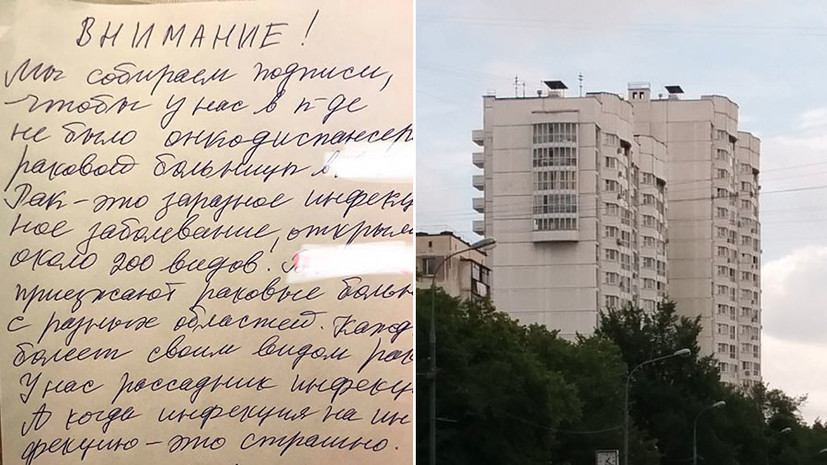 ВНИМАНИЕ!
Мы собираем подписи,
чтобы у нас в п-де
не было онкодиспансер
раковой больницы в
Рак - это заразное инфекц
ное заболевание, открыли
около 200 видов.
приезжают раковые больн
с разных областей. Кажд
болеет своим видом рак
У нас рассадник инфекц
А когда инфекция на ин
фекцию - это страшно.